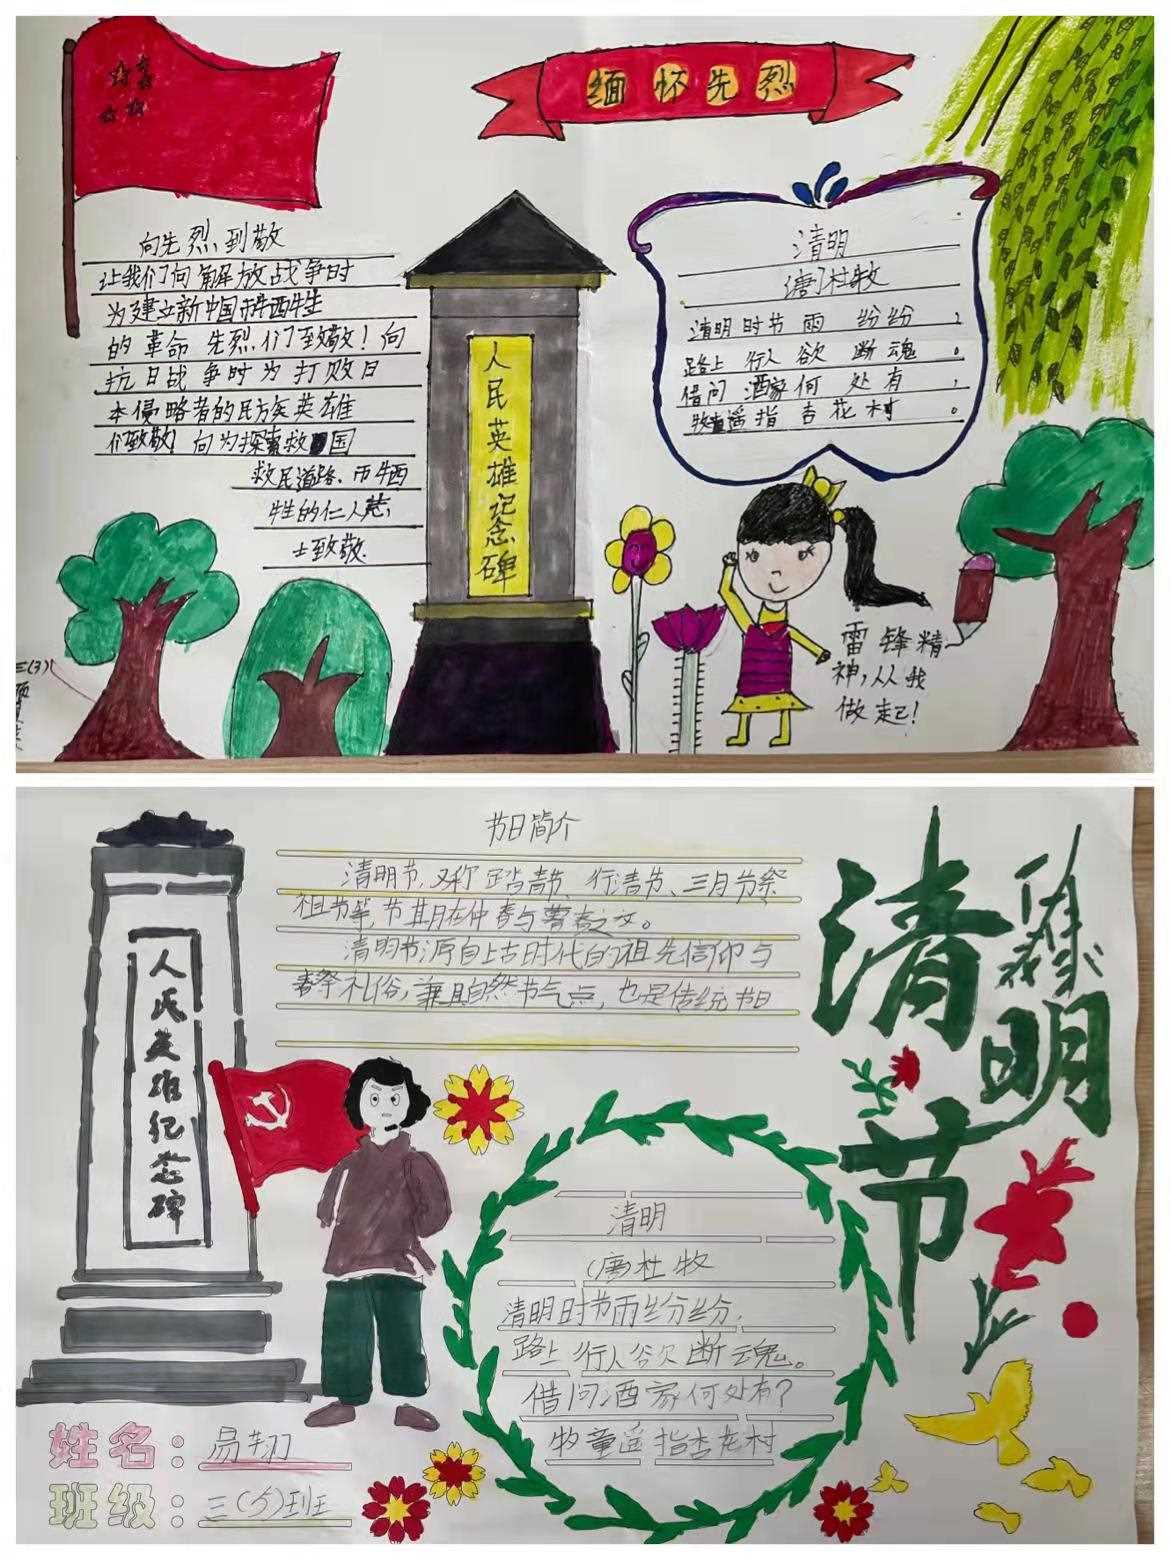 缅怀先烈
向先烈到敬
让我们向解放战争时
为建立新中国而牺牲
的革命先烈们致敬！向
抗日战争时为打败日
本侵略者的民族英雄
们致敬！向为探索救国
救民道路、而牺
牲的仁人志
士致敬.
人民英雄记念碑
清明
(唐)杜牧
清明时节雨纷纷，
路上行人欲断魂。
借问酒家何处有，
牧童遥指杏花村。
雷锋精
神，从我
做起！
三(3)
节日简介
清明节，又称踏青节、行清节、三月节祭
祖节等，节其月在仲春与暮春之交。
清明节源自上古时代的祖先信仰与
春祭礼俗，兼具自然节气点，也是传统节日
清明节
人民英雄纪念碑
清明
(唐)杜牧
清明时节雨纷纷.
路上行人欲断魂。
借问酒家何处有？
牧童遥指杏花村
姓名：易翔
班级：三(5)班